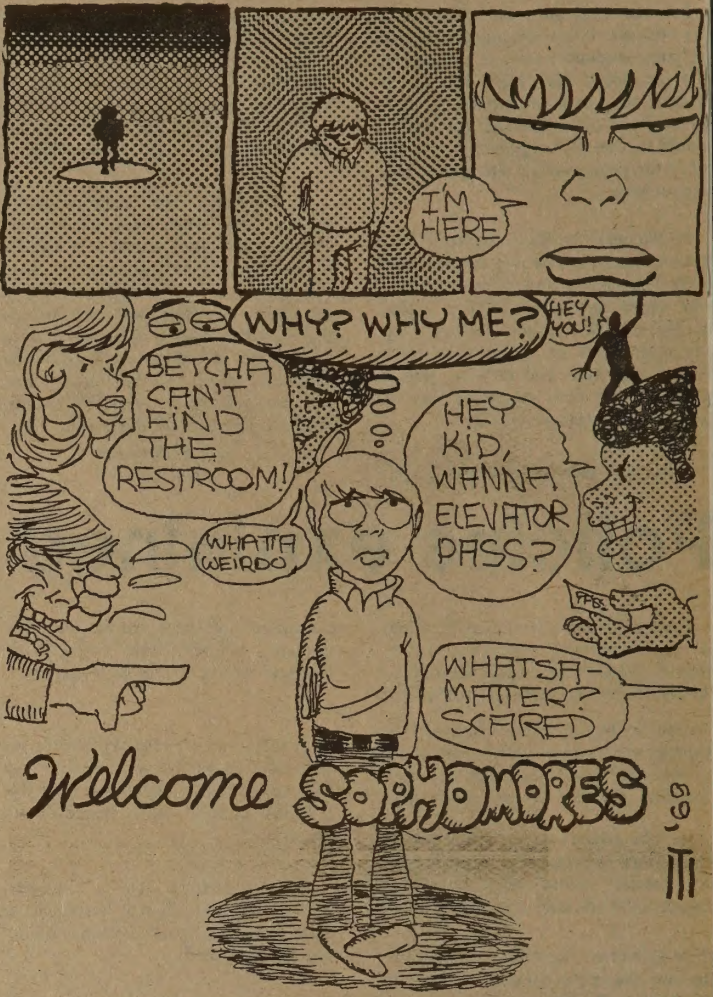 I'M
HERE
WHY? WHY ME?
HEY
YOU!
BETCHA
CAN'T
FIND
THE
RESTROOM!
HEY
KID,
WANNA
ELEVATOR
PASS?
WHATTA
WEIRDO
PASS
WHATSA-
MATTER?
SCARED
Welcome SOPHOMORES
'69